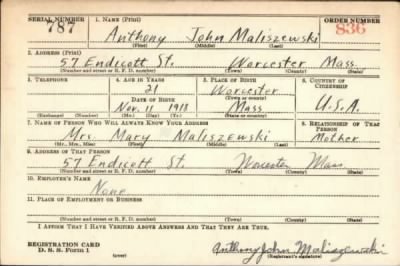 SERIAL NUMBER 1. NAME (Print) ORDER NUMBER
787 Anthony John Maliszewski 836
(First) (Middle) (Last)
2. ADDRESS (Print)
57 Endicott St. Worcester Mass.
(Number and street or R. F. D. number) (Town) (County) (State)
3. TELEPHONE 4. AGE IN YEARS 5. PLACE OF BIRTH 6. COUNTRY OF CITIZENSHIP
21 Worcester
DATE OF BIRTH (Town or county)
Nov. 11 1918 Mass U.S.A.
(Exchange) (Number) (Mo.) (Day) (Yr.) (State or country)
7. NAME OF PERSON WHO WILL ALWAYS KNOW YOUR ADDRESS 8. RELATIONSHIP OF THAT PERSON
Mrs. Mary Maliszewski Mother
(Mr., Mrs., Miss) (First) (Middle) (Last)
9. ADDRESS OF THAT PERSON
57 Endicott St. Worcester Mass.
(Number and street or R. F. D. number) (Town) (County) (State)
10. EMPLOYER'S NAME
None
11. PLACE OF EMPLOYMENT OR BUSINESS
(Number and street or R. F. D. number) (Town) (County) (State)
I AFFIRM THAT I HAVE VERIFIED ABOVE ANSWERS AND THAT THEY ARE TRUE.
REGISTRATION CARD
D. S. S. Form 1 (over) Anthony John Maliszewski
(Registrant's signature)